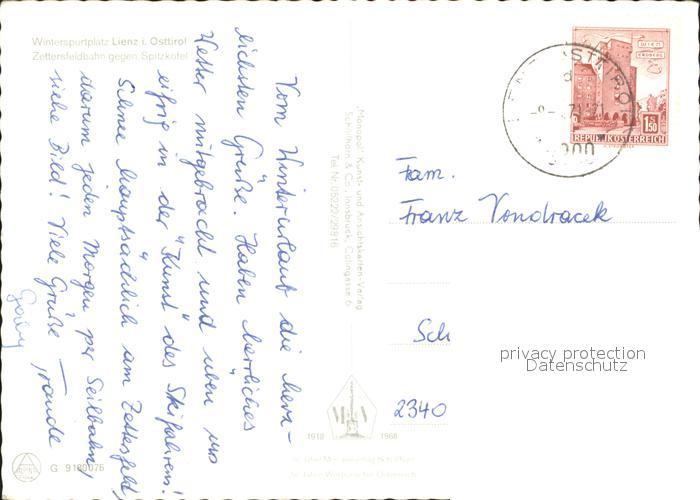 Wintersportplatz Lienz i. Osttirol
Zettersfeldbahn gegen Spitzkofel
Vom Winterurlaub die herz-
lichsten Grüße. Haben herrliches
Wetter mitgebracht und üben uns
eifrig in der "Kunst" des Skifahrens!
Schnee hauptsächlich am Zettersfeld,
darum jeden Morgen per Seilbahn,
siehe Bild! Viele Grüße Traude
Gaby
„Monopol" Kunst- und Ansichtskarten-Verlag
Schöllhorn & Co., Innsbruck, Colingasse 6
Tel. Nr. 05222/29816
WIEN
ERDBERG
1.50
REPUBLIK ÖSTERREICH
LIENZ OSTTIROL
Fam.
Franz Vondracek
Sch
privacy protection
Datenschutz
2340
1918
1968
G 9180076